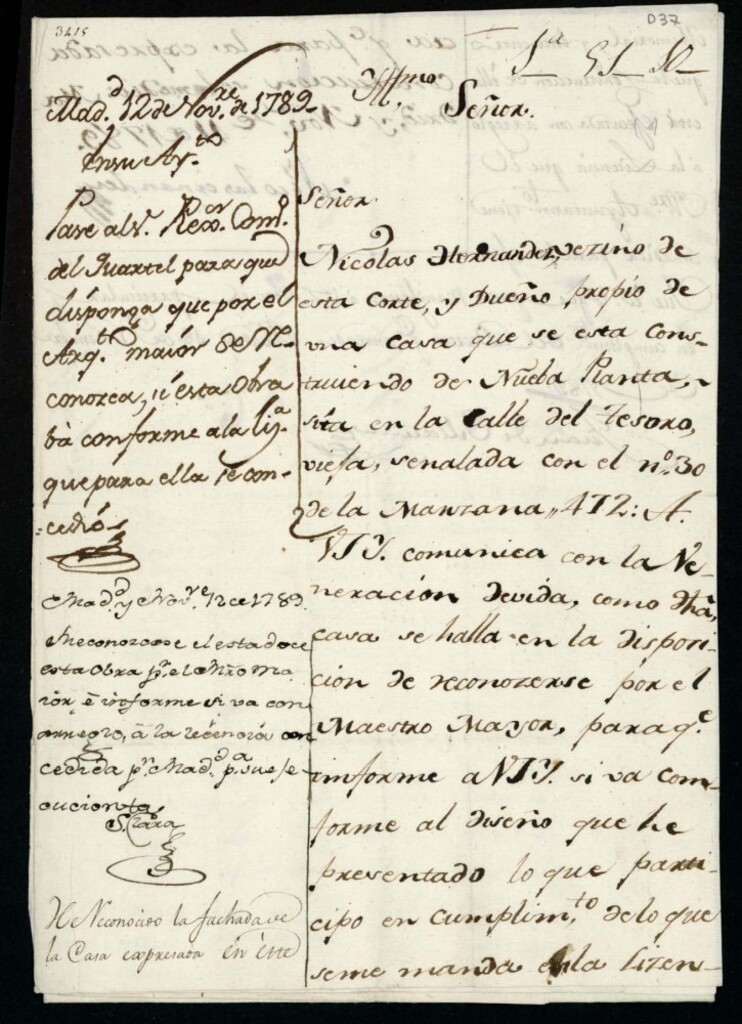 3215
D37
Yll.mo
Señor.
Mad.d 12 de Nov.re de 1789
En su Ay.to
Pase al s.r Rex.or Com.o
del Quartel para que
disponga que por el
Arq.to maior de M.
conozca, si esta Obra
bà conforme a la liz.a
que para ella se con-
cedió
Mad.d y Nov.re 12 de 1789.
Reconozcase el estado de
esta Obra p.r el Mro Ma
ior, è ynforme si va con
arreglo, à la licencia con
cedida p.r Mad.d p.a su eje
cucion
S.Clara
He Reconocido la fachada de
la Casa expresada en este
Señor
Nicolas Hernandez, vezino de
esta Corte, y Dueño propio de
vna casa que se esta cons-
truiendo de Nueba Planta,
sita en la Calle del Tesoro,
vieja, señalada con el n.o 30
de la Manzana, 472: A.
VSY. comunica con la Ve-
neracion devida, como dha,
casa se halla en la disposi-
cion de reconozerse por el
Maestro Mayor, para q.e
ynforme a VSY. si va con-
forme al diseño que he
presentado lo que parti-
cipo en Cumplim.to de lo que
seme manda en la Lizen-